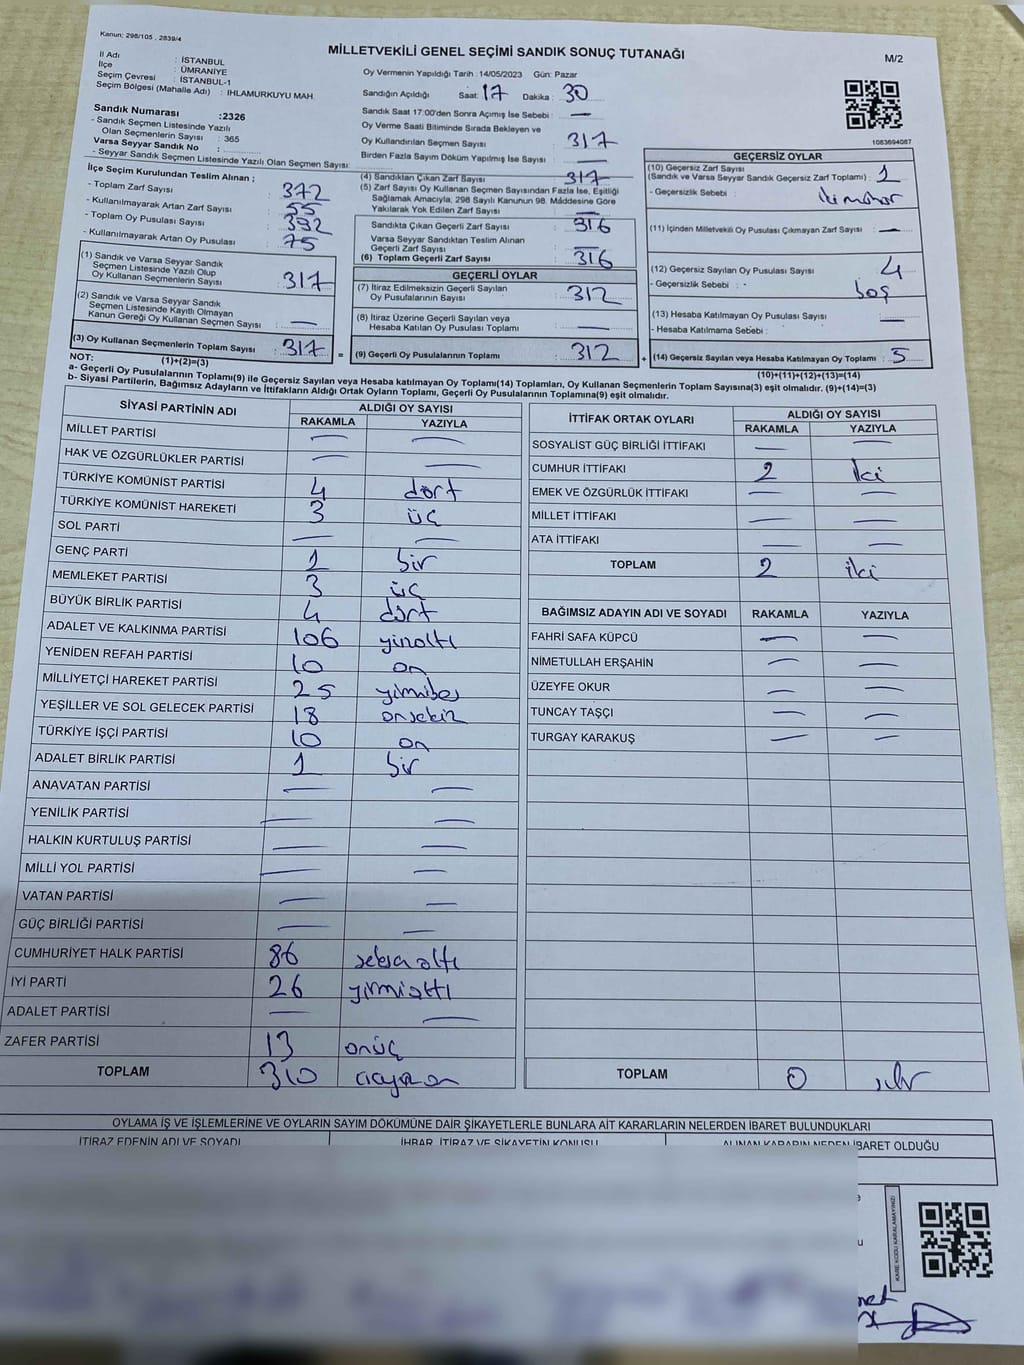 Kanun: 298/105 . 2839/4
MİLLETVEKİLİ GENEL SEÇİMİ SANDIK SONUÇ TUTANAĞI
M/2
İl Adı : İSTANBUL
İlçe : ÜMRANİYE
Seçim Çevresi : İSTANBUL-1
Seçim Bölgesi (Mahalle Adı) : IHLAMURKUYU MAH.
Sandık Numarası :2326
- Sandık Seçmen Listesinde Yazılı
Olan Seçmenlerin Sayısı : 365
Varsa Seyyar Sandık No :
- Seyyar Sandık Seçmen Listesinde Yazılı Olan Seçmen Sayısı:
İlçe Seçim Kurulundan Teslim Alınan ;
- Toplam Zarf Sayısı : 372
- Kullanılmayarak Artan Zarf Sayısı : 55
- Toplam Oy Pusulası Sayısı : 392
- Kullanılmayarak Artan Oy Pusulası : 75
(1) Sandık ve Varsa Seyyar Sandık
Seçmen Listesinde Yazılı Olup
Oy Kullanan Seçmenlerin Sayısı : 317
(2) Sandık ve Varsa Seyyar Sandık
Seçmen Listesinde Kayıtlı Olmayan
Kanun Gereği Oy Kullanan Seçmen Sayısı : —
(3) Oy Kullanan Seçmenlerin Toplam Sayısı : 317
(1)+(2)=(3)
Oy Vermenin Yapıldığı Tarih : 14/05/2023 Gün: Pazar
Sandığın Açıldığı Saat: 17 Dakika : 30
Sandık Saat 17:00'den Sonra Açımış İse Sebebi : —
Oy Verme Saati Bitiminde Sırada Bekleyen ve
Oy Kullandırılan Seçmen Sayısı : 317
Birden Fazla Sayım Döküm Yapılmış İse Sayısı : —
(4) Sandıktan Çıkan Zarf Sayısı : 317
(5) Zarf Sayısı Oy Kullanan Seçmen Sayısından Fazla İse, Eşitliği
Sağlamak Amacıyla, 298 Sayılı Kanunun 98. Maddesine Göre
Yakılarak Yok Edilen Zarf Sayısı : —
Sandıkta Çıkan Geçerli Zarf Sayısı : 316
Varsa Seyyar Sandıktan Teslim Alınan
Geçerli Zarf Sayısı : —
(6) Toplam Geçerli Zarf Sayısı : 316
GEÇERLİ OYLAR
(7) İtiraz Edilmeksizin Geçerli Sayılan
Oy Pusulalarının Sayısı : 312
(8) İtiraz Üzerine Geçerli Sayılan veya
Hesaba Katılan Oy Pusulası Toplamı : —
= (9) Geçerli Oy Pusulalarının Toplamı : 312
1083694087
GEÇERSİZ OYLAR
(10) Geçersiz Zarf Sayısı
(Sandık ve Varsa Seyyar Sandık Geçersiz Zarf Toplamı) : 1
- Geçersizlik Sebebi : iki mühür
(11) İçinden Milletvekili Oy Pusulası Çıkmayan Zarf Sayısı : —
(12) Geçersiz Sayılan Oy Pusulası Sayısı : 4
- Geçersizlik Sebebi : boş
(13) Hesaba Katılmayan Oy Pusulası Sayısı : —
- Hesaba Katılmama Sebebi :
+ (14) Geçersiz Sayılan veya Hesaba Katılmayan Oy Toplamı : 5
(10)+(11)+(12)+(13)=(14)
NOT:
a- Geçerli Oy Pusulalarının Toplamı(9) ile Geçersiz Sayılan veya Hesaba katılmayan Oy Toplamı(14) Toplamları, Oy Kullanan Seçmenlerin Toplam Sayısına(3) eşit olmalıdır. (9)+(14)=(3)
b- Siyasi Partilerin, Bağımsız Adayların ve İttifakların Aldığı Ortak Oyların Toplamı, Geçerli Oy Pusulalarının Toplamına(9) eşit olmalıdır.
SİYASİ PARTİNİN ADI ALDIĞI OY SAYISI
RAKAMLA YAZIYLA
MİLLET PARTİSİ — —
HAK VE ÖZGÜRLÜKLER PARTİSİ — —
TÜRKİYE KOMÜNİST PARTİSİ 4 dört
TÜRKİYE KOMÜNİST HAREKETİ 3 üç
SOL PARTİ — —
GENÇ PARTİ 1 bir
MEMLEKET PARTİSİ 3 üç
BÜYÜK BİRLİK PARTİSİ 4 dört
ADALET VE KALKINMA PARTİSİ 106 yüzaltı
YENİDEN REFAH PARTİSİ 10 on
MİLLİYETÇİ HAREKET PARTİSİ 25 yirmibeş
YEŞİLLER VE SOL GELECEK PARTİSİ 18 onsekiz
TÜRKİYE İŞÇİ PARTİSİ 10 on
ADALET BİRLİK PARTİSİ 1 bir
ANAVATAN PARTİSİ — —
YENİLİK PARTİSİ — —
HALKIN KURTULUŞ PARTİSİ — —
MİLLİ YOL PARTİSİ — —
VATAN PARTİSİ — —
GÜÇ BİRLİĞİ PARTİSİ — —
CUMHURİYET HALK PARTİSİ 86 seksenaltı
İYİ PARTİ 26 yirmialtı
ADALET PARTİSİ — —
ZAFER PARTİSİ 13 onüç
TOPLAM 310 üçyüzon
İTTİFAK ORTAK OYLARI ALDIĞI OY SAYISI
RAKAMLA YAZIYLA
SOSYALİST GÜÇ BİRLİĞİ İTTİFAKI — —
CUMHUR İTTİFAKI 2 iki
EMEK VE ÖZGÜRLÜK İTTİFAKI — —
MİLLET İTTİFAKI — —
ATA İTTİFAKI — —
TOPLAM 2 iki
BAĞIMSIZ ADAYIN ADI VE SOYADI RAKAMLA YAZIYLA
FAHRİ SAFA KÜPCÜ — —
NİMETULLAH ERŞAHİN — —
ÜZEYFE OKUR — —
TUNCAY TAŞÇI — —
TURGAY KARAKUŞ — —
TOPLAM 0 sıfır
OYLAMA İŞ VE İŞLEMLERİNE VE OYLARIN SAYIM DÖKÜMÜNE DAİR ŞİKAYETLERLE BUNLARA AİT KARARLARIN NELERDEN İBARET BULUNDUKLARI
İTİRAZ EDENİN ADI VE SOYADI İHBAR, İTİRAZ VE ŞİKAYETİN KONUSU ALINAN KARARIN NEDEN İBARET OLDUĞU
KARE KODU KARALAMAYINIZ!